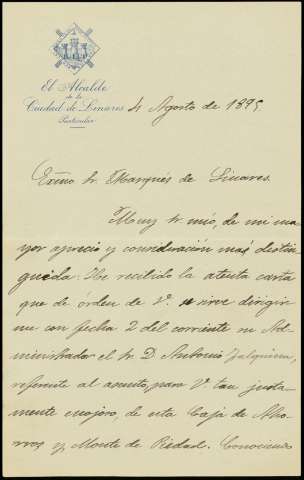 El Alcalde
de la
Ciudad de Linares
Particular
4 Agosto de 1895
Exmo Sr. Marqués de Linares.
Muy Sr mio, de mi ma-
yor aprecio y consideración mas distin-
guida: He recibido la atenta carta
que de órden de V. se sirve dirigir-
me con fecha 2 del corriente su Ad-
ministrador el Sr. D. Antonio
referente al asunto, para V. tan justa-
mente enojoso, de esta Caja de Aho-
rros y Monte de Piedad. Conociendo